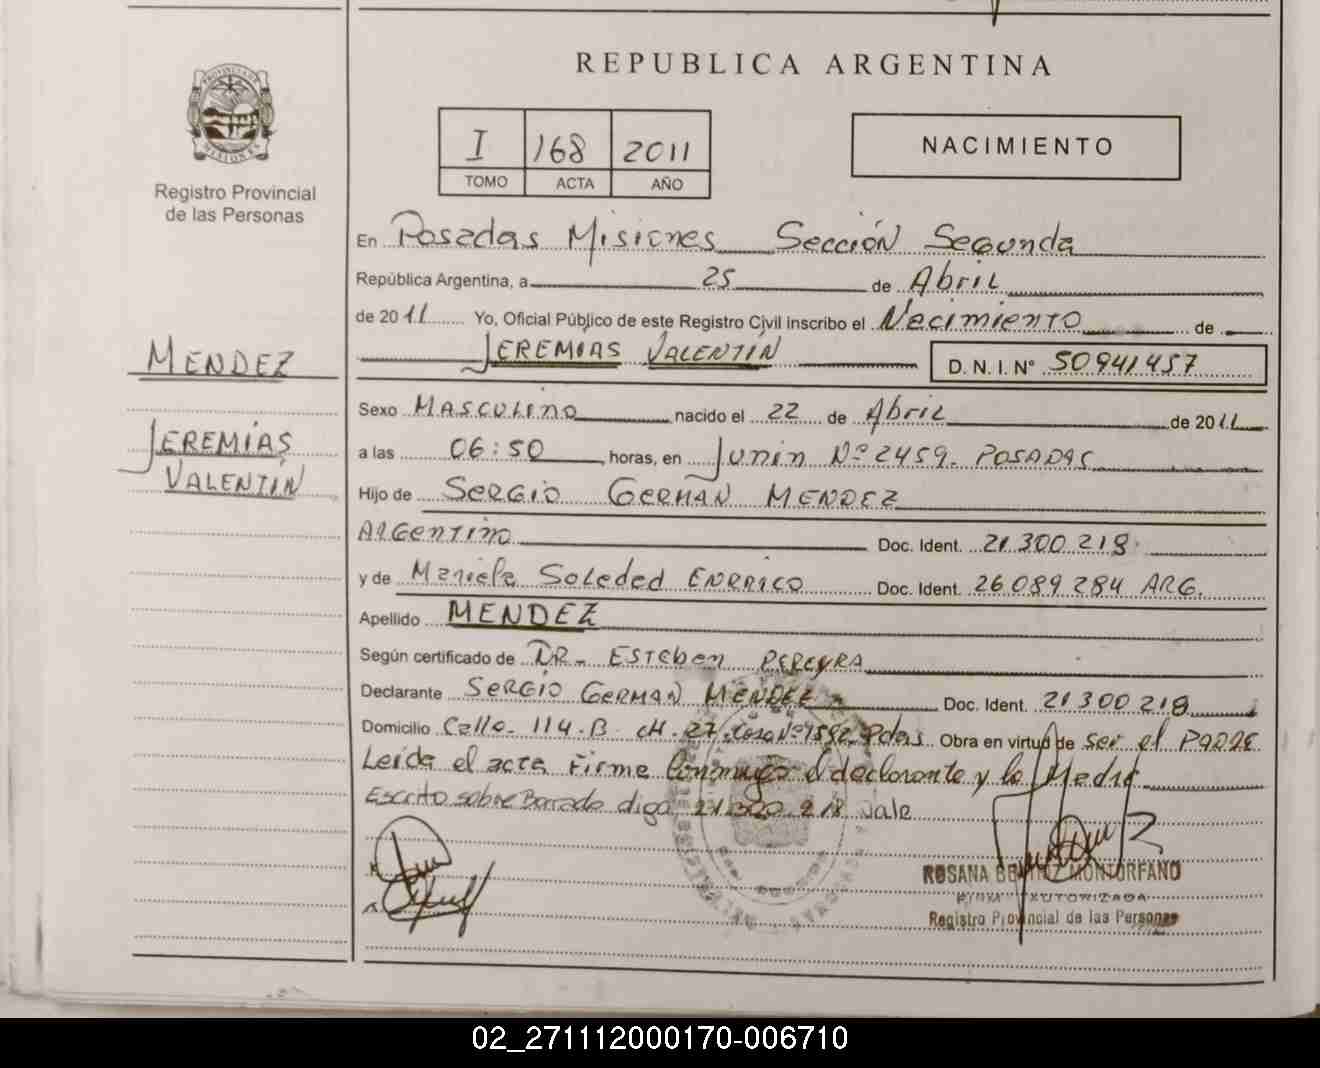 REPUBLICA ARGENTINA
PROVINCIA DE MISIONES
Registro Provincial
de las Personas
I 168 2011
TOMO ACTA AÑO
NACIMIENTO
En Posadas Misiones Sección Segunda
República Argentina, a 25 de Abril
de 2011 Yo, Oficial Público de este Registro Civil inscribo el Nacimiento de
JEREMIAS VALENTIN D. N. I. N° 50941457
MENDEZ
JEREMIAS
VALENTIN
Sexo MASCULINO nacido el 22 de Abril de 2011
a las 06:50 horas, en Junin Nº 2459. POSADAS
Hijo de SERGIO GERMAN MENDEZ
ARGENTINO Doc. Ident. 21.300.218
y de Mariela Soledad ENRRICO Doc. Ident. 26.089.284 ARG.
Apellido MENDEZ
Según certificado de DR. ESTEBAN PEREYRA
Declarante SERGIO GERMAN MENDEZ Doc. Ident. 21300218
Domicilio Calle 114.B. cH. 27. Casa Nº 7592 Pdas Obra en virtud de ser el PADRE
Leída el acta Firme Conmigo el declarante y la Madre
Escrito sobre Borrado diga 21.300.218 vale
ROSANA BEATRIZ MONTORFANO
FIRMA AUTORIZADA
Registro Provincial de las Personas
02_271112000170-006710